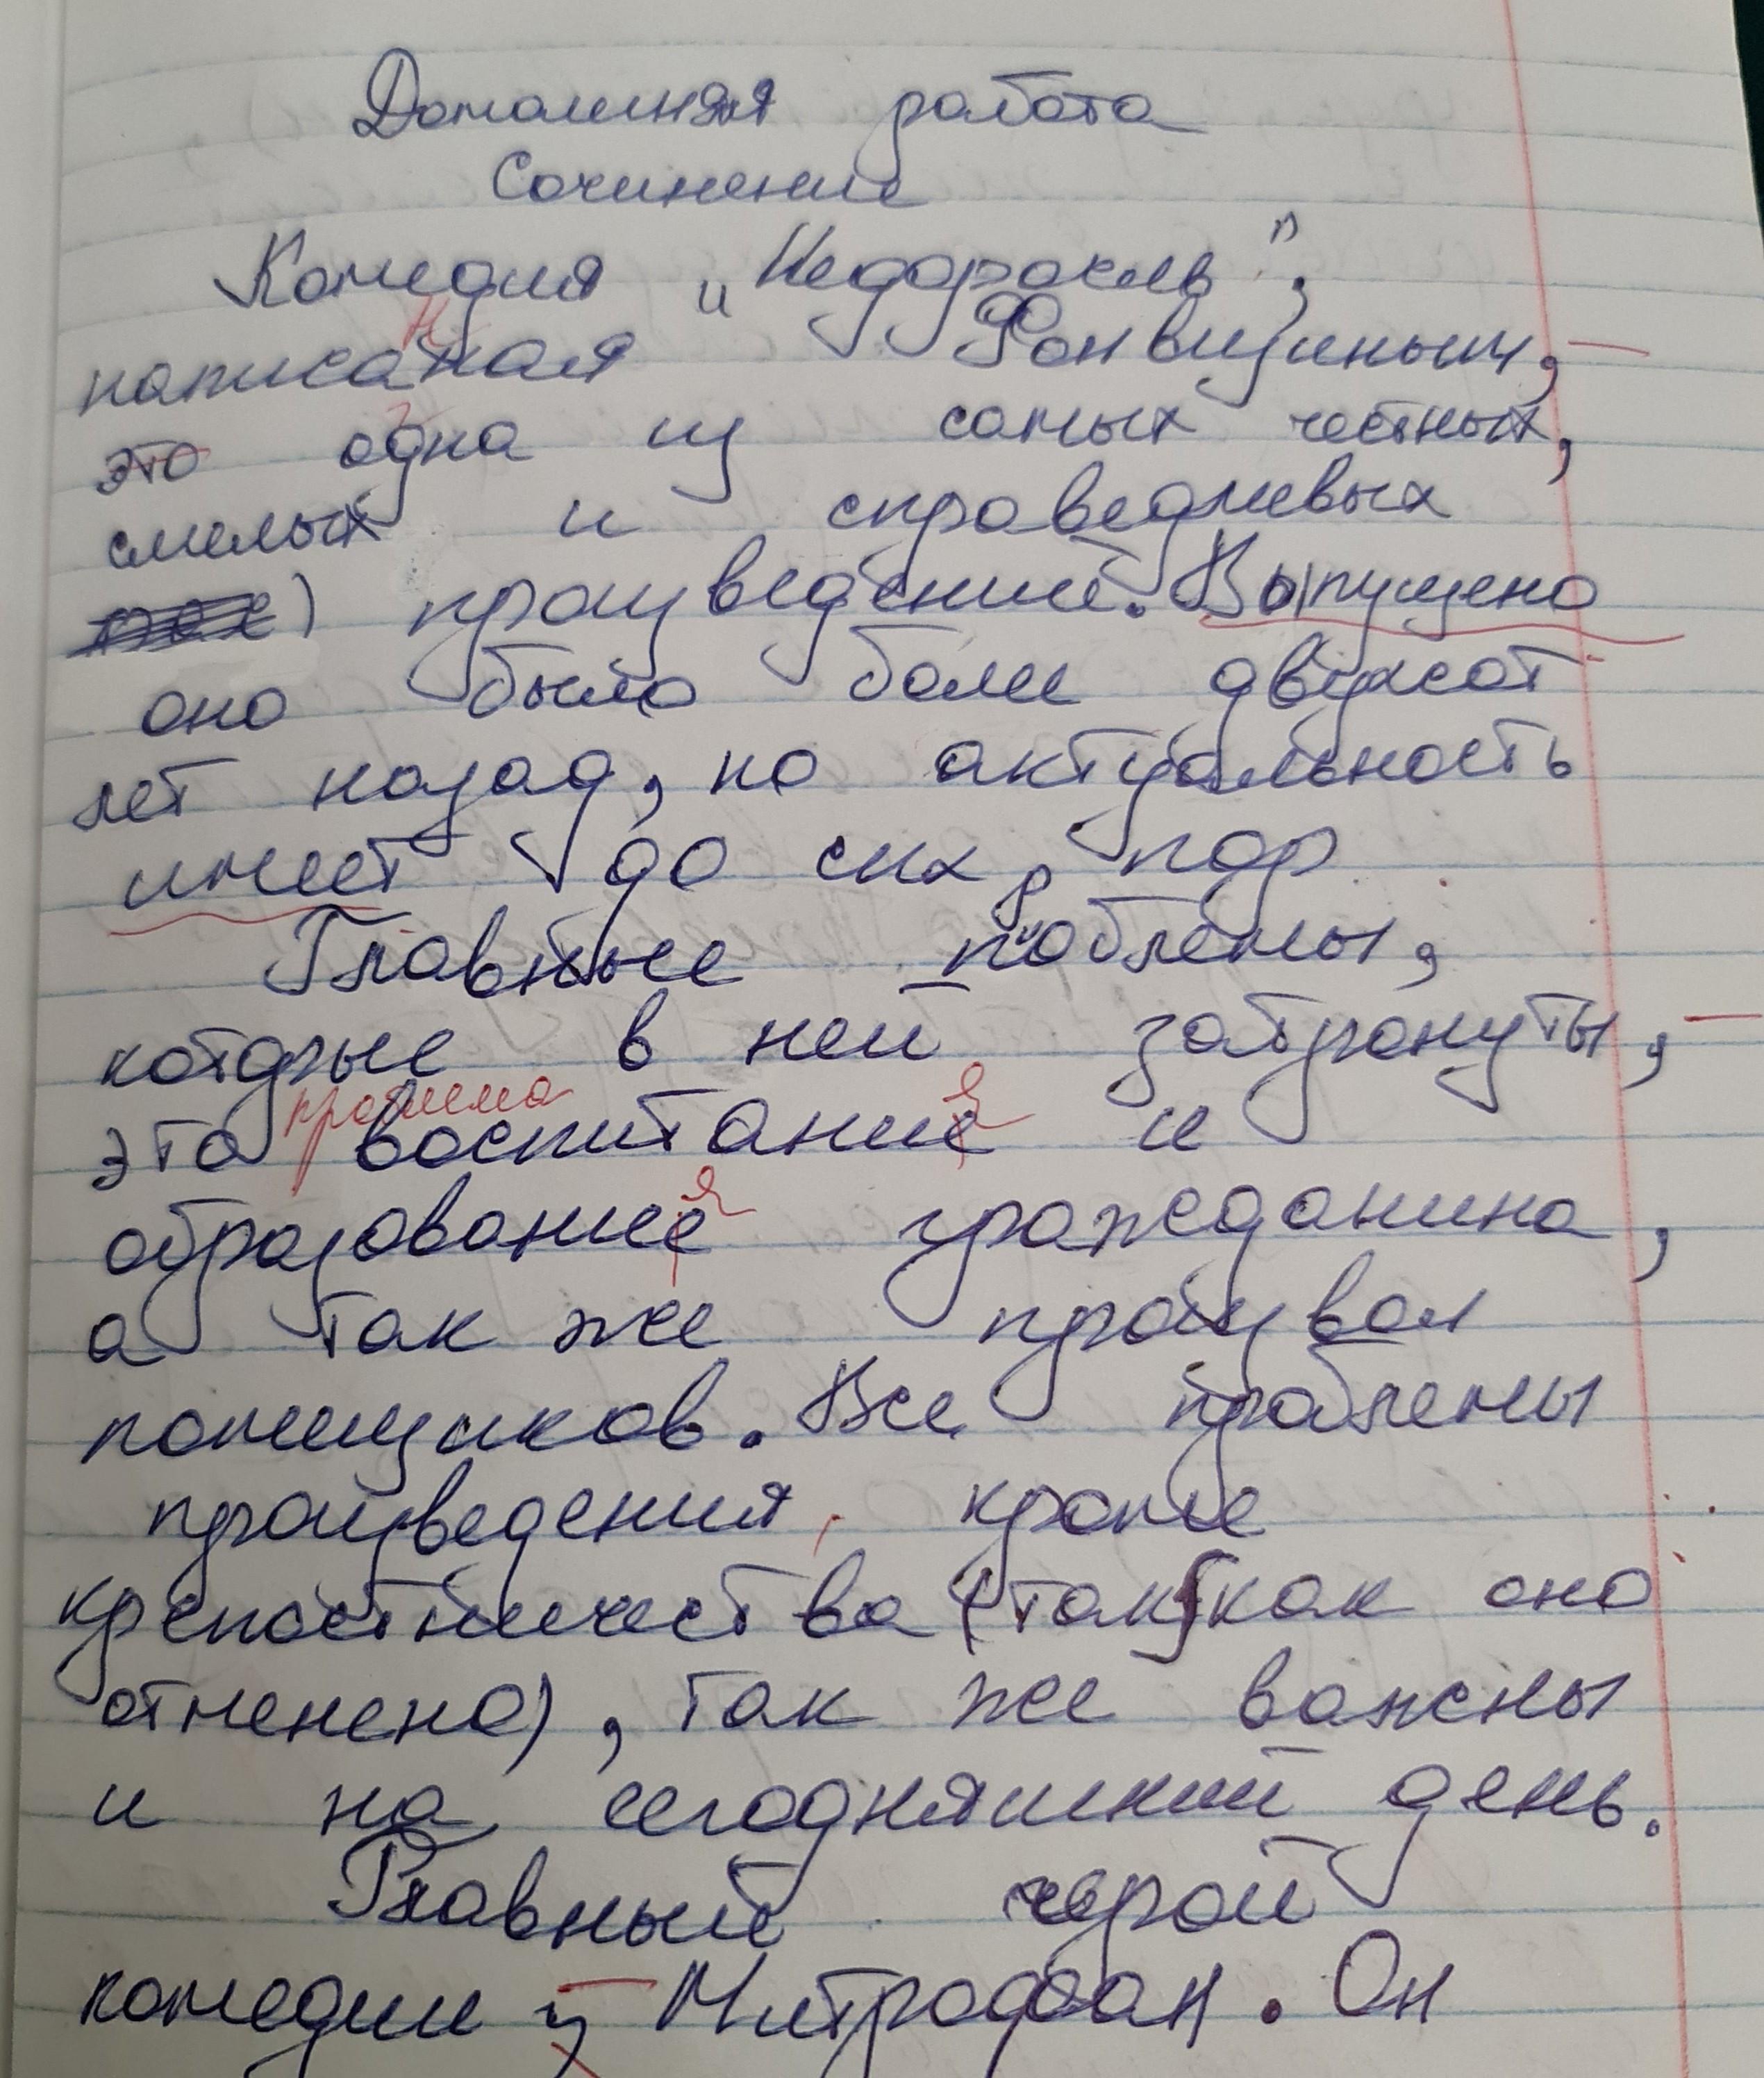 Домашняя работа
Сочинение
Комедия „Недоросль",
н
написаная Фонвизиным, —
это одна из самых честных,
смелых и справедливых
произведений. Выпущено
оно было боле двухсот
лет назад, но актуальность
имеет до сих пор
Главные проблемы,
которые в ней затронуты, —
проблема я
это воспитание и
я
образование гражданина,
а так же произвол
помещиков. Все проблемы
произведения, кроме
крепостничества (так как оно
отменено), так же важны
и на сегодняшний день.
Главный герой
комедии — Митрофан. Он